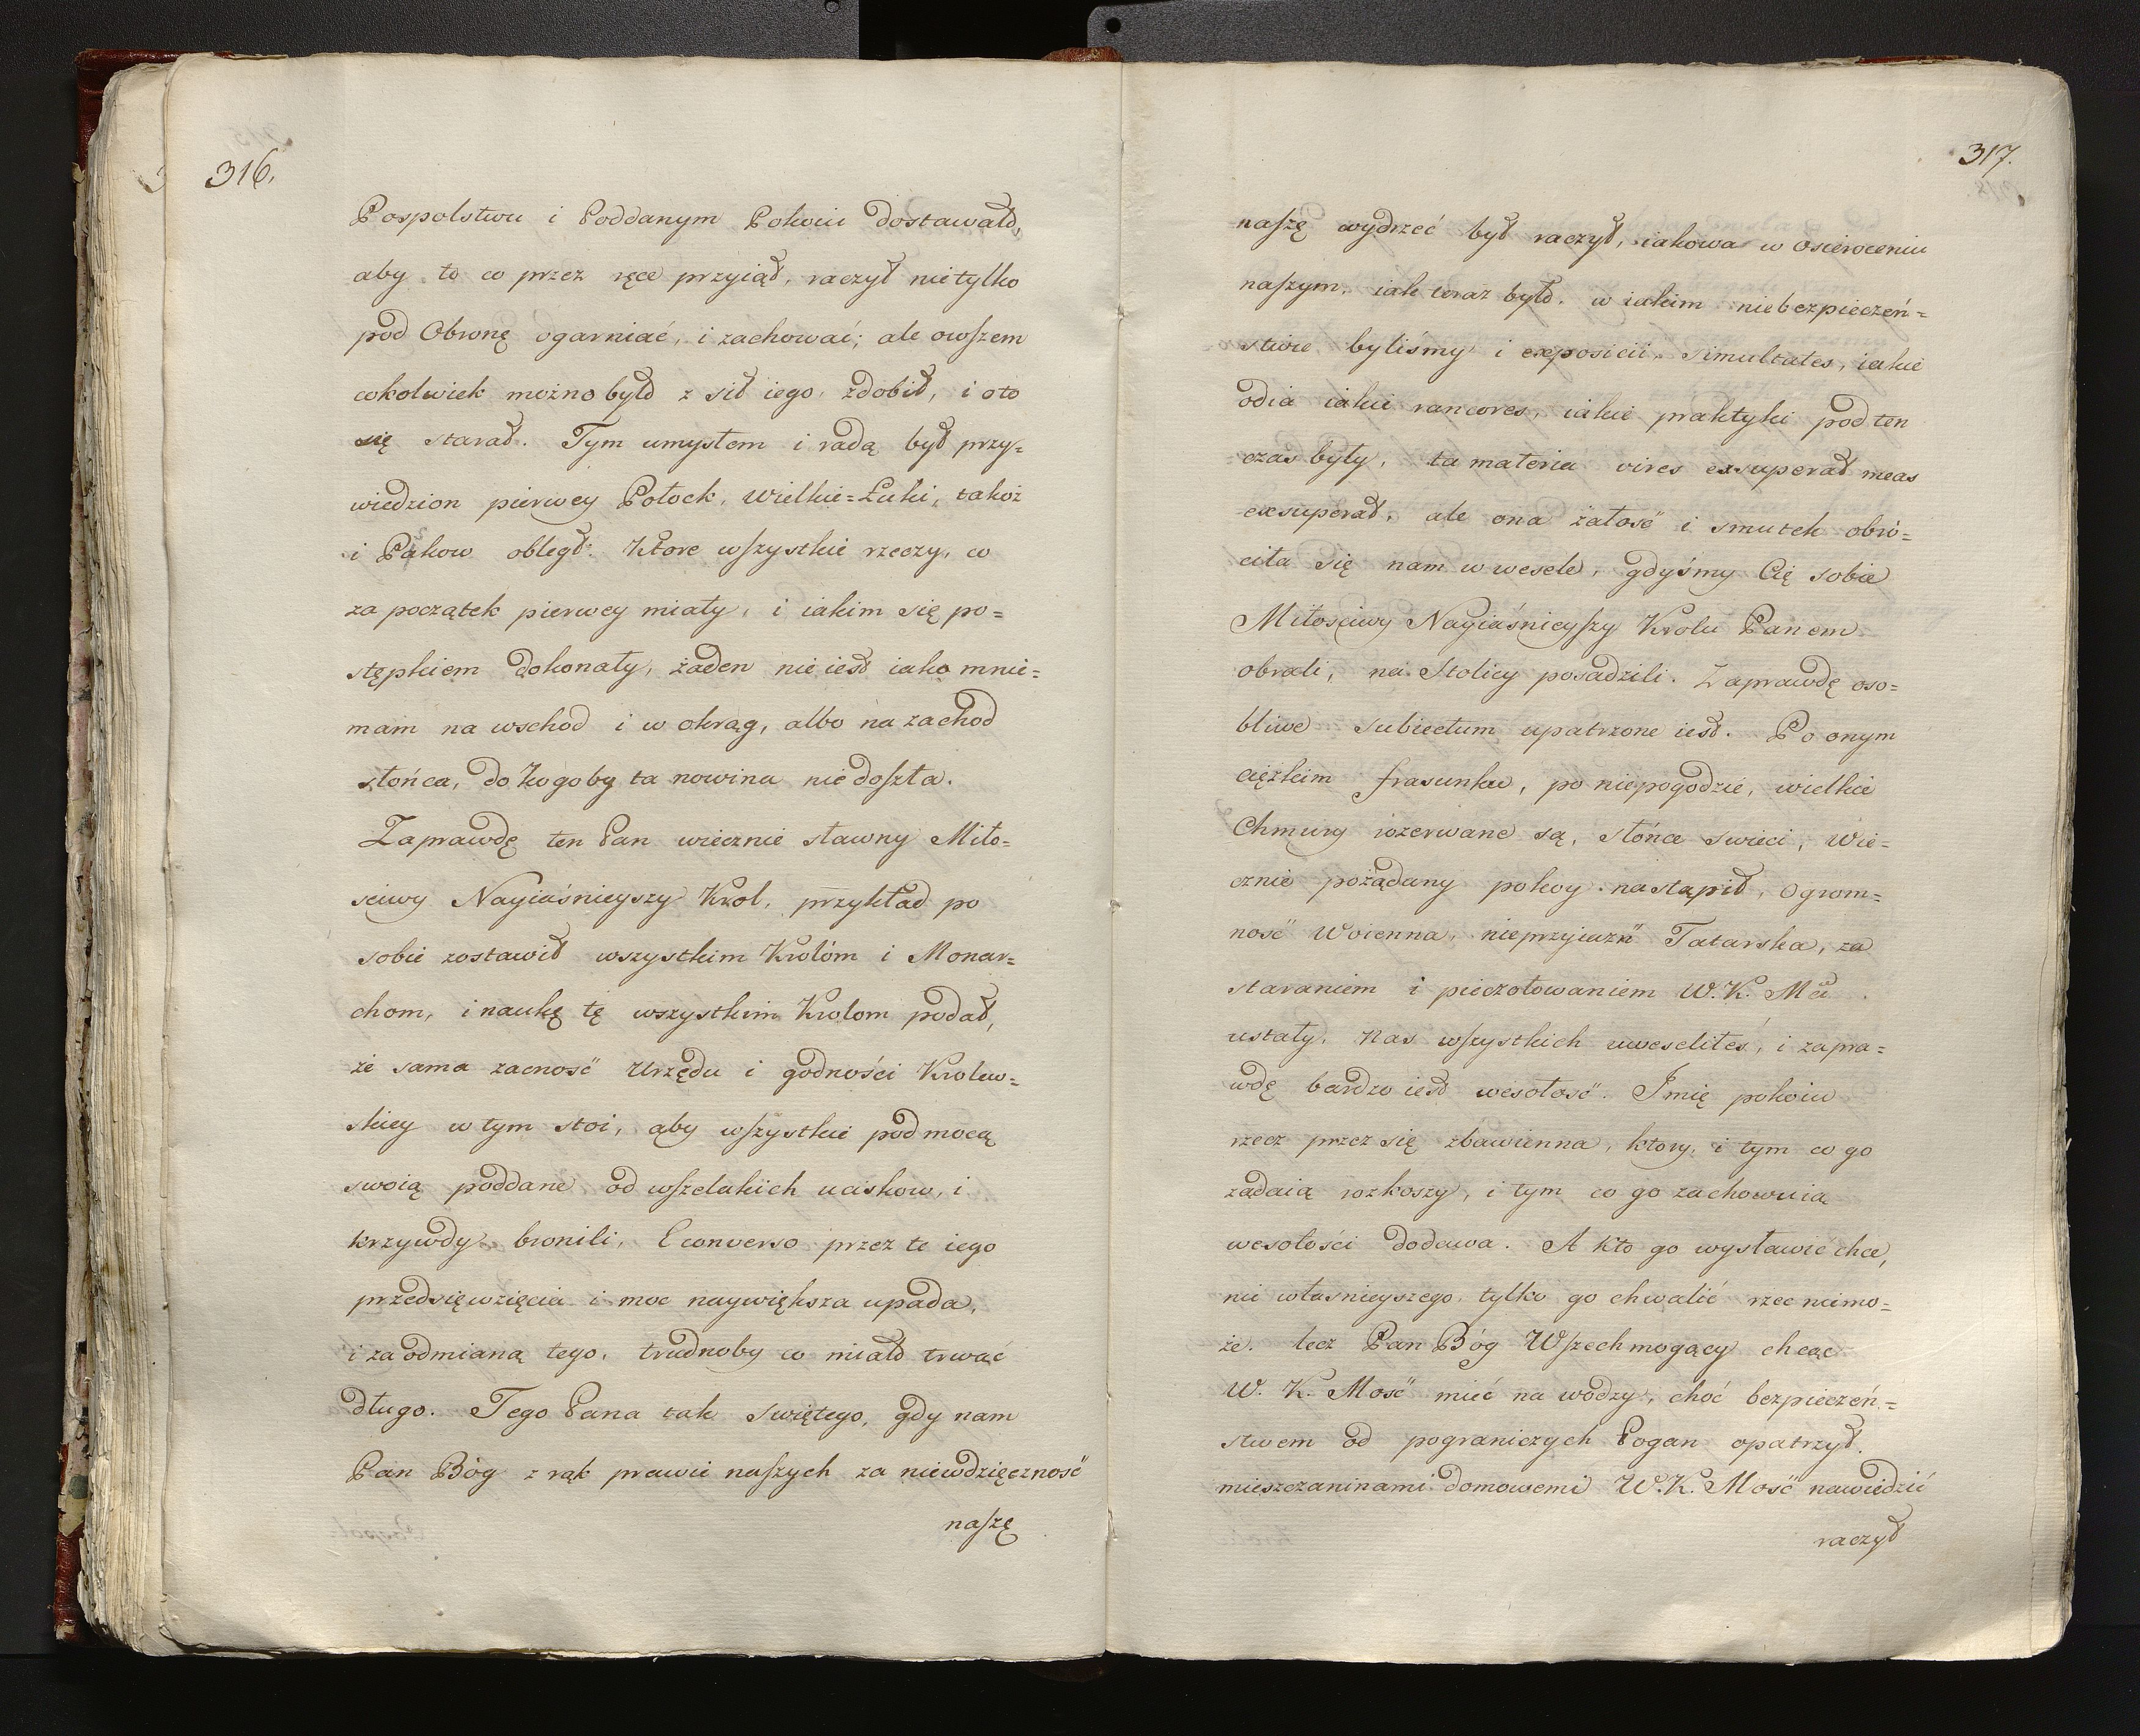 316.
Pospolstwu i Poddanym Pokoiu dostawało,
aby to co przez ręce przyiął, raczył nietylko
pod Obronę ogarniać, i zachować; ale owszem
cokolwiek można było z sił iego, zdobił, i oto
się starał. Tym umysłem i radą był przy=
wiedzion pierwey Połock, Wielkie=Łuki, takoż
i Pskow obległ. Ktore wszystkie rzeczy, co
za początek pierwey miały, i iakim się po=
stępkiem dokonały, żaden nie iest iako mnie=
mam na wschod i w okrąg, albo na zachod
słońca, do kogoby ta nowina nie doszła.
Zaprawdę ten Pan wiecznie sławny Miło=
sciwy Nayiaśnieyszy Krol, przykład po
sobie zostawił wszystkim Królóm i Monar=
chom, i naukę tę wszystkim Krolom podał,
że sama zacność Urzędu i godności Krolew=
skiey w tym stoi, aby wszystkie pod mocą
swoią poddane od wszelakich uciskow, i
krzywdy bronili, Econverso przez te iego
przedsięwzięcia i moc naywiększa upada,
i za odmianą tego, trudnoby co miało trwać
długo. Tego Pana tak świętego, gdy nam
Pan Bóg z rąk prawie naszych za niewdzięczność
naszę
317.
naszę wydrzeć był raczył, iakowa w osieroceniu
naszym, iak uraz było, w iakim niebezpieczeń=
stwie byliśmy i exposicii, simultates, iakie
odia iakie rancores, iakie praktyki pod ten
czas były, ta materia vires exsuperat meas
exsuperat, ale ona żałość i smutek obró=
ciła się nam w wesele, gdyśmy Cię sobie
Miłosciwy Nayiaśnieyszy Krolu Panem
obrali, na Stolicy posadzili. Zaprawdę oso=
bliwe subiectum upatrzone iest. Po onym
ciężkim frasunku, po niepogodzie, wielkie
Chmury rozerwane są, słońce swieci, Wie=
cznie pożądany pokoy nastąpił, Ogrom=
ność Woienna, nieprzyiaźń Tatarska, za
staraniem i pieczołowaniem W. K. Mci
ustały. Nas wszystkich uweseliłeś, i zapra=
wdę bardzo iest wesołość. Imię pokoiu
rzecz przez się zbawienna, ktory, i tym co go
żądaią rozkoszy, i tym co go zachowuią
wesołości dodawa. A kto go wysławić chce,
nic własnieyszego, tylko go chwalić rzec niemo=
że. lecz Pan Bóg Wszechmogący chcąc
W. K. Mość mieć na wodzy, choć bezpieczeń=
stwem od pograniczych Pogan opatrzył.
mieszczaninami domowemi W. K. Mość nawiedzić
raczył